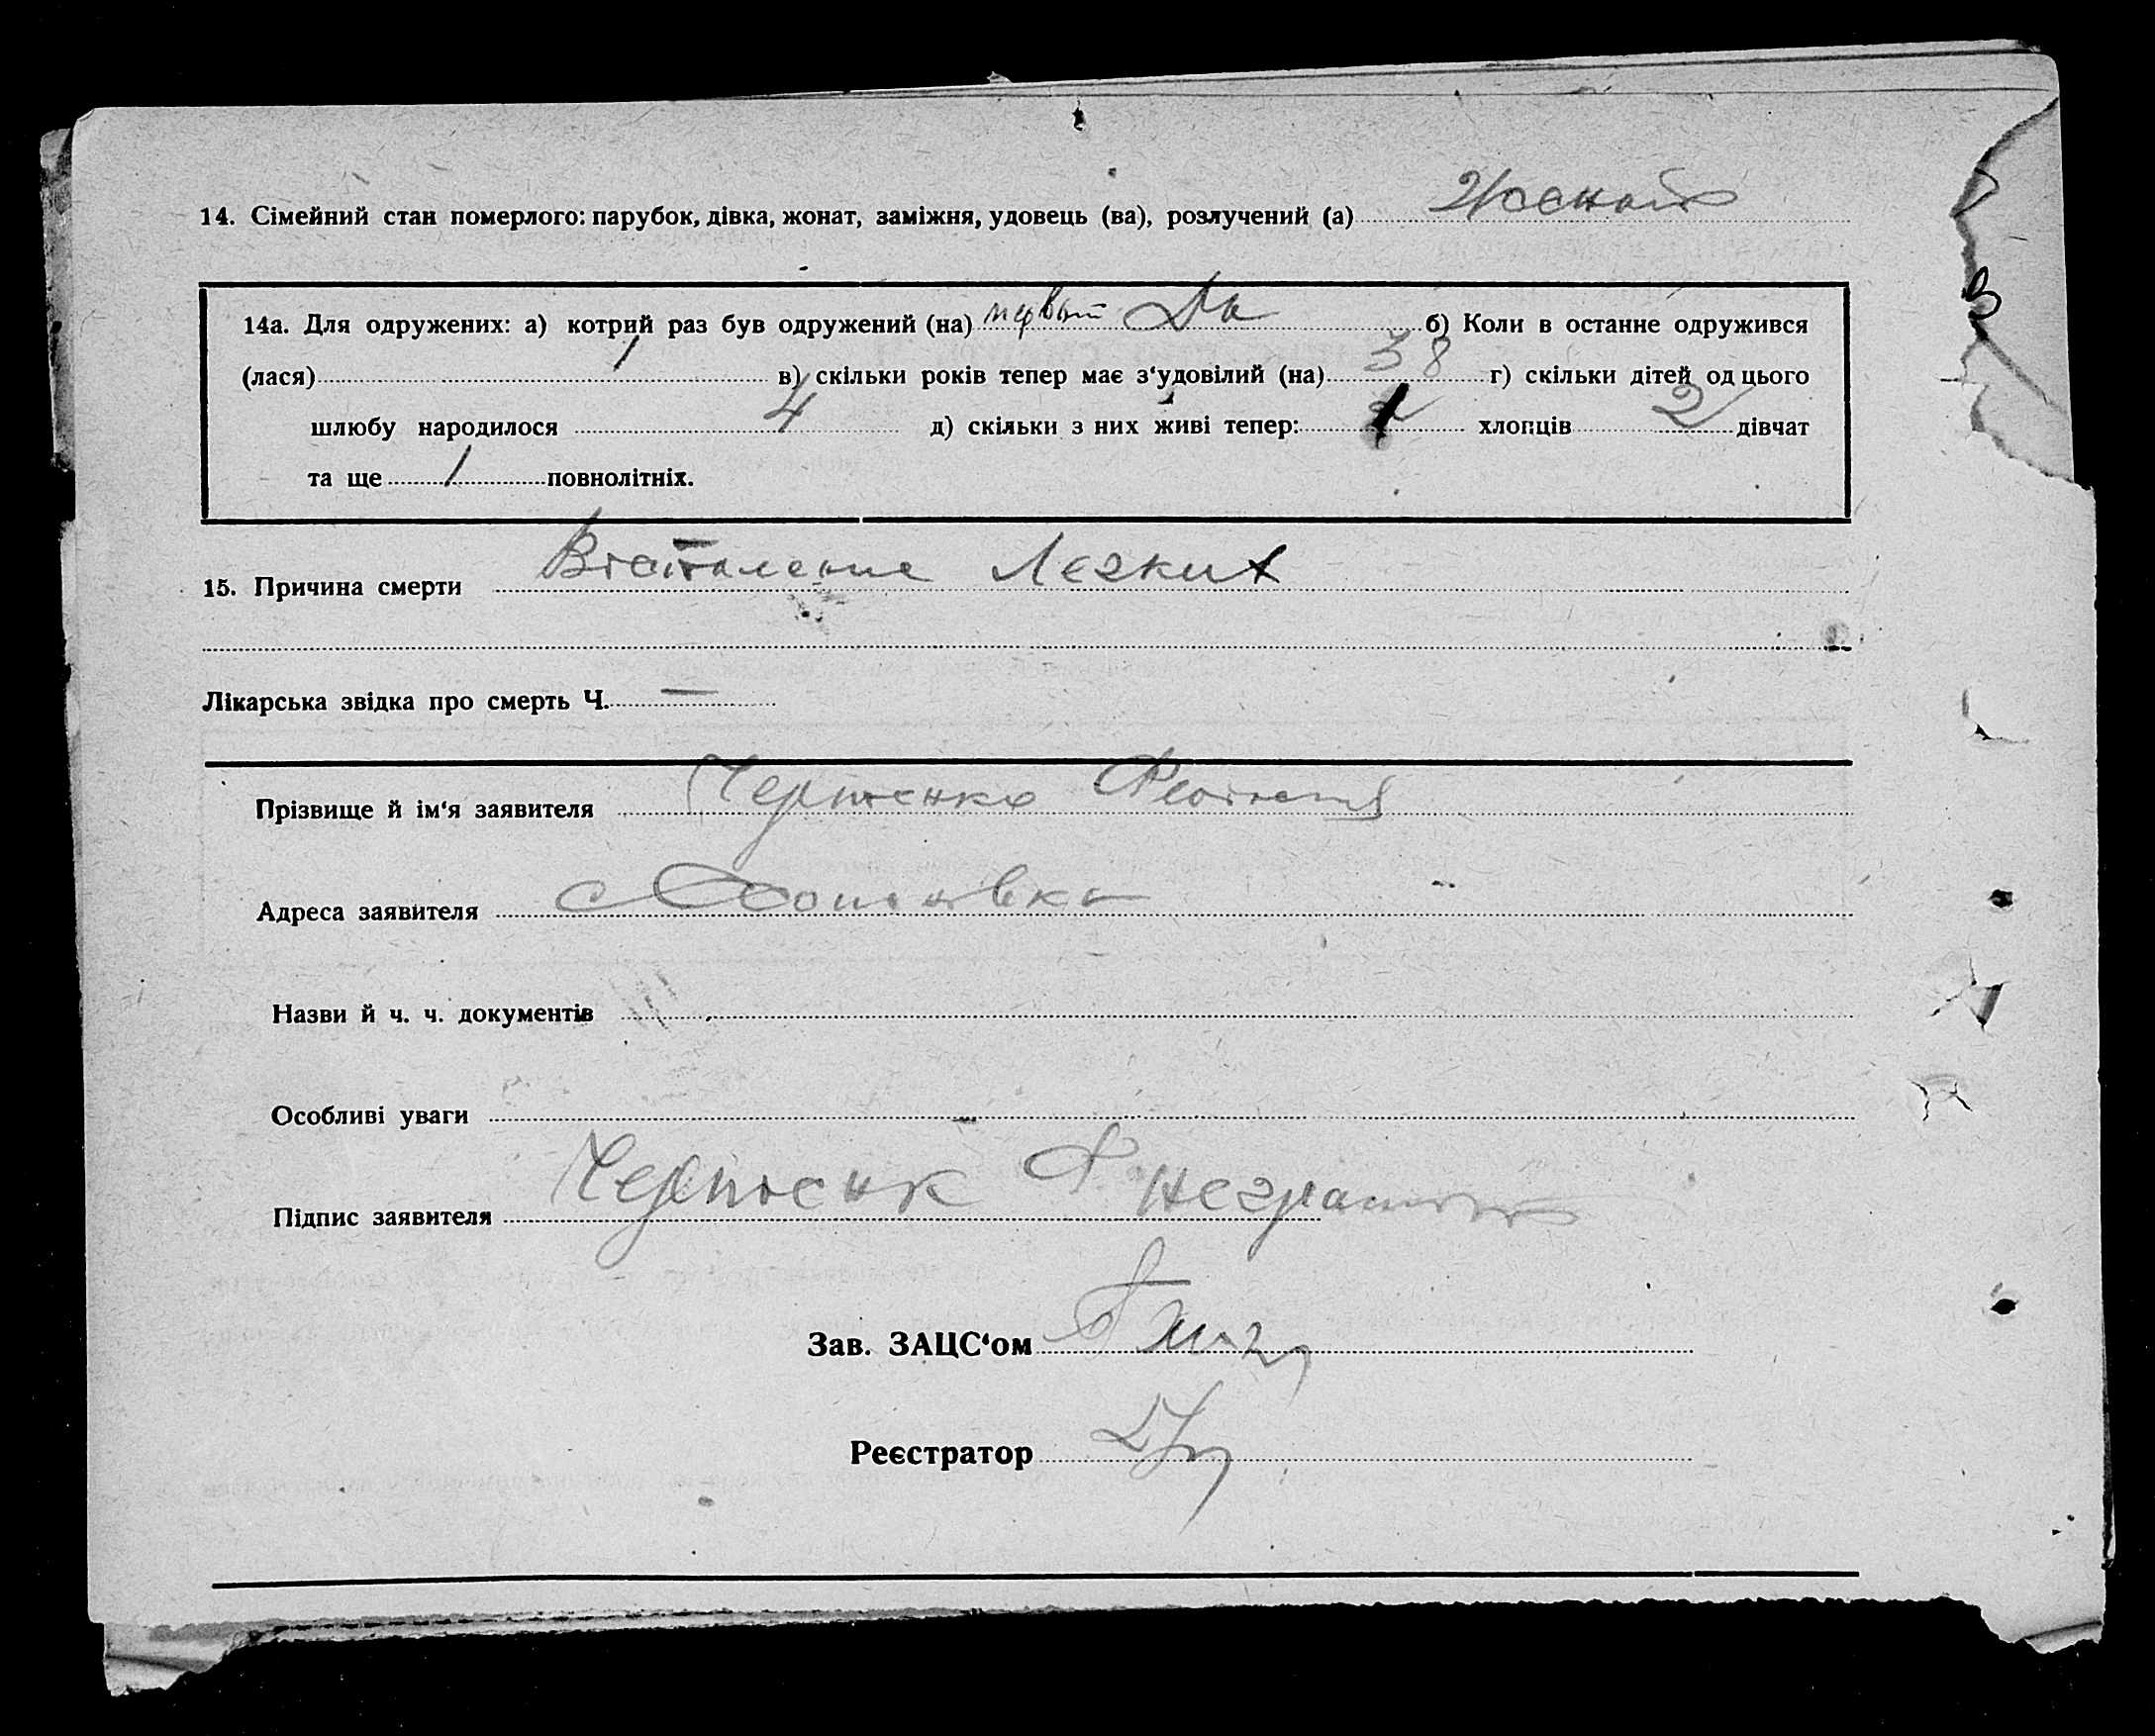 14. Сімейний стан померлого: парубок, дівка, жонат, заміжня, удовець (ва), розлучений (а) Женат
14а. Для одружених: а) котрий раз був одружений (на) первый Да б) Коли в останне одружився
(лася) 1 в) скільки років тепер має з‘удовілий (на) 38 г) скільки дітей од цього
шлюбу народилося 4 д) скільки з них живі тепер: хлопців 2 дівчат
та ще 1 повнолітніх.
15. Причина смерти Восталение Легких
Лікарська звідка про смерть Ч. —
Прізвище й ім‘я заявителя
Адреса заявителя с
Назви й ч. ч. документів
Особливі уваги
Підпис заявителя
Зав. ЗАЦС‘ом
Реєстратор